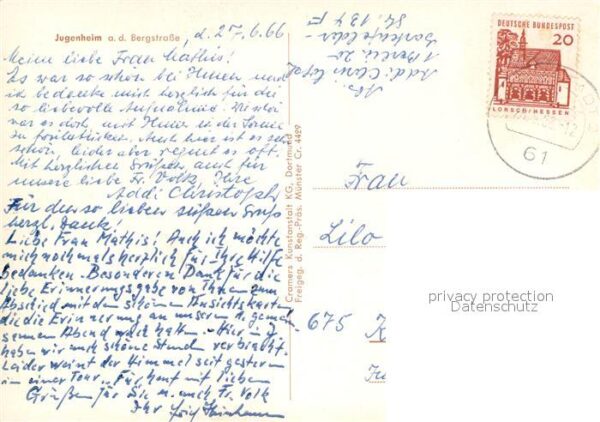 Jugenheim a. d. Bergstraße, d. 27.6.66
Meine liebe Frau Mathis!
Es war so schön bei Ihnen und
ich bedanke mich herzlich für die
so liebevolle Aufnahme! Wie schön
war es doch, mit Ihnen in der Sonne
zu frühstücken. Auch hier ist es sehr
schön leider aber regnet es oft.
Mit herzlichen Grüßen auch für
unsere liebe Fr. Volk Ihre
Addi Christoph
Für den so lieben süßen Gruß
herzl. Dank.
Liebe Frau Mathis! Auch ich möchte
mich nochmals herzlich für Ihre Hilfe
bedanken. Besonderen Dank für die
liebe Erinnerungsgabe von Ihnen zum
Abschied mit den schönen Ansichtskarten
die die Erinnerung an unseren gemein-
samen Abend wach halten. Hier
haben wir auch schöne Stunden verbracht.
Leider weint der Himmel seit gestern
in einer Tour. Für heut mit lieben
Grüßen für Sie u. auch Fr. Volk
Ihr
Cramers Kunstanstalt KG, Dortmund
Freigeg. d. Reg.-Präs. Münster Cr. 4429
1 Berlin 20
DEUTSCHE BUNDESPOST
20
LORSCH/HESSEN
61
Frau
Lilo
675
privacy protection
Datenschutz